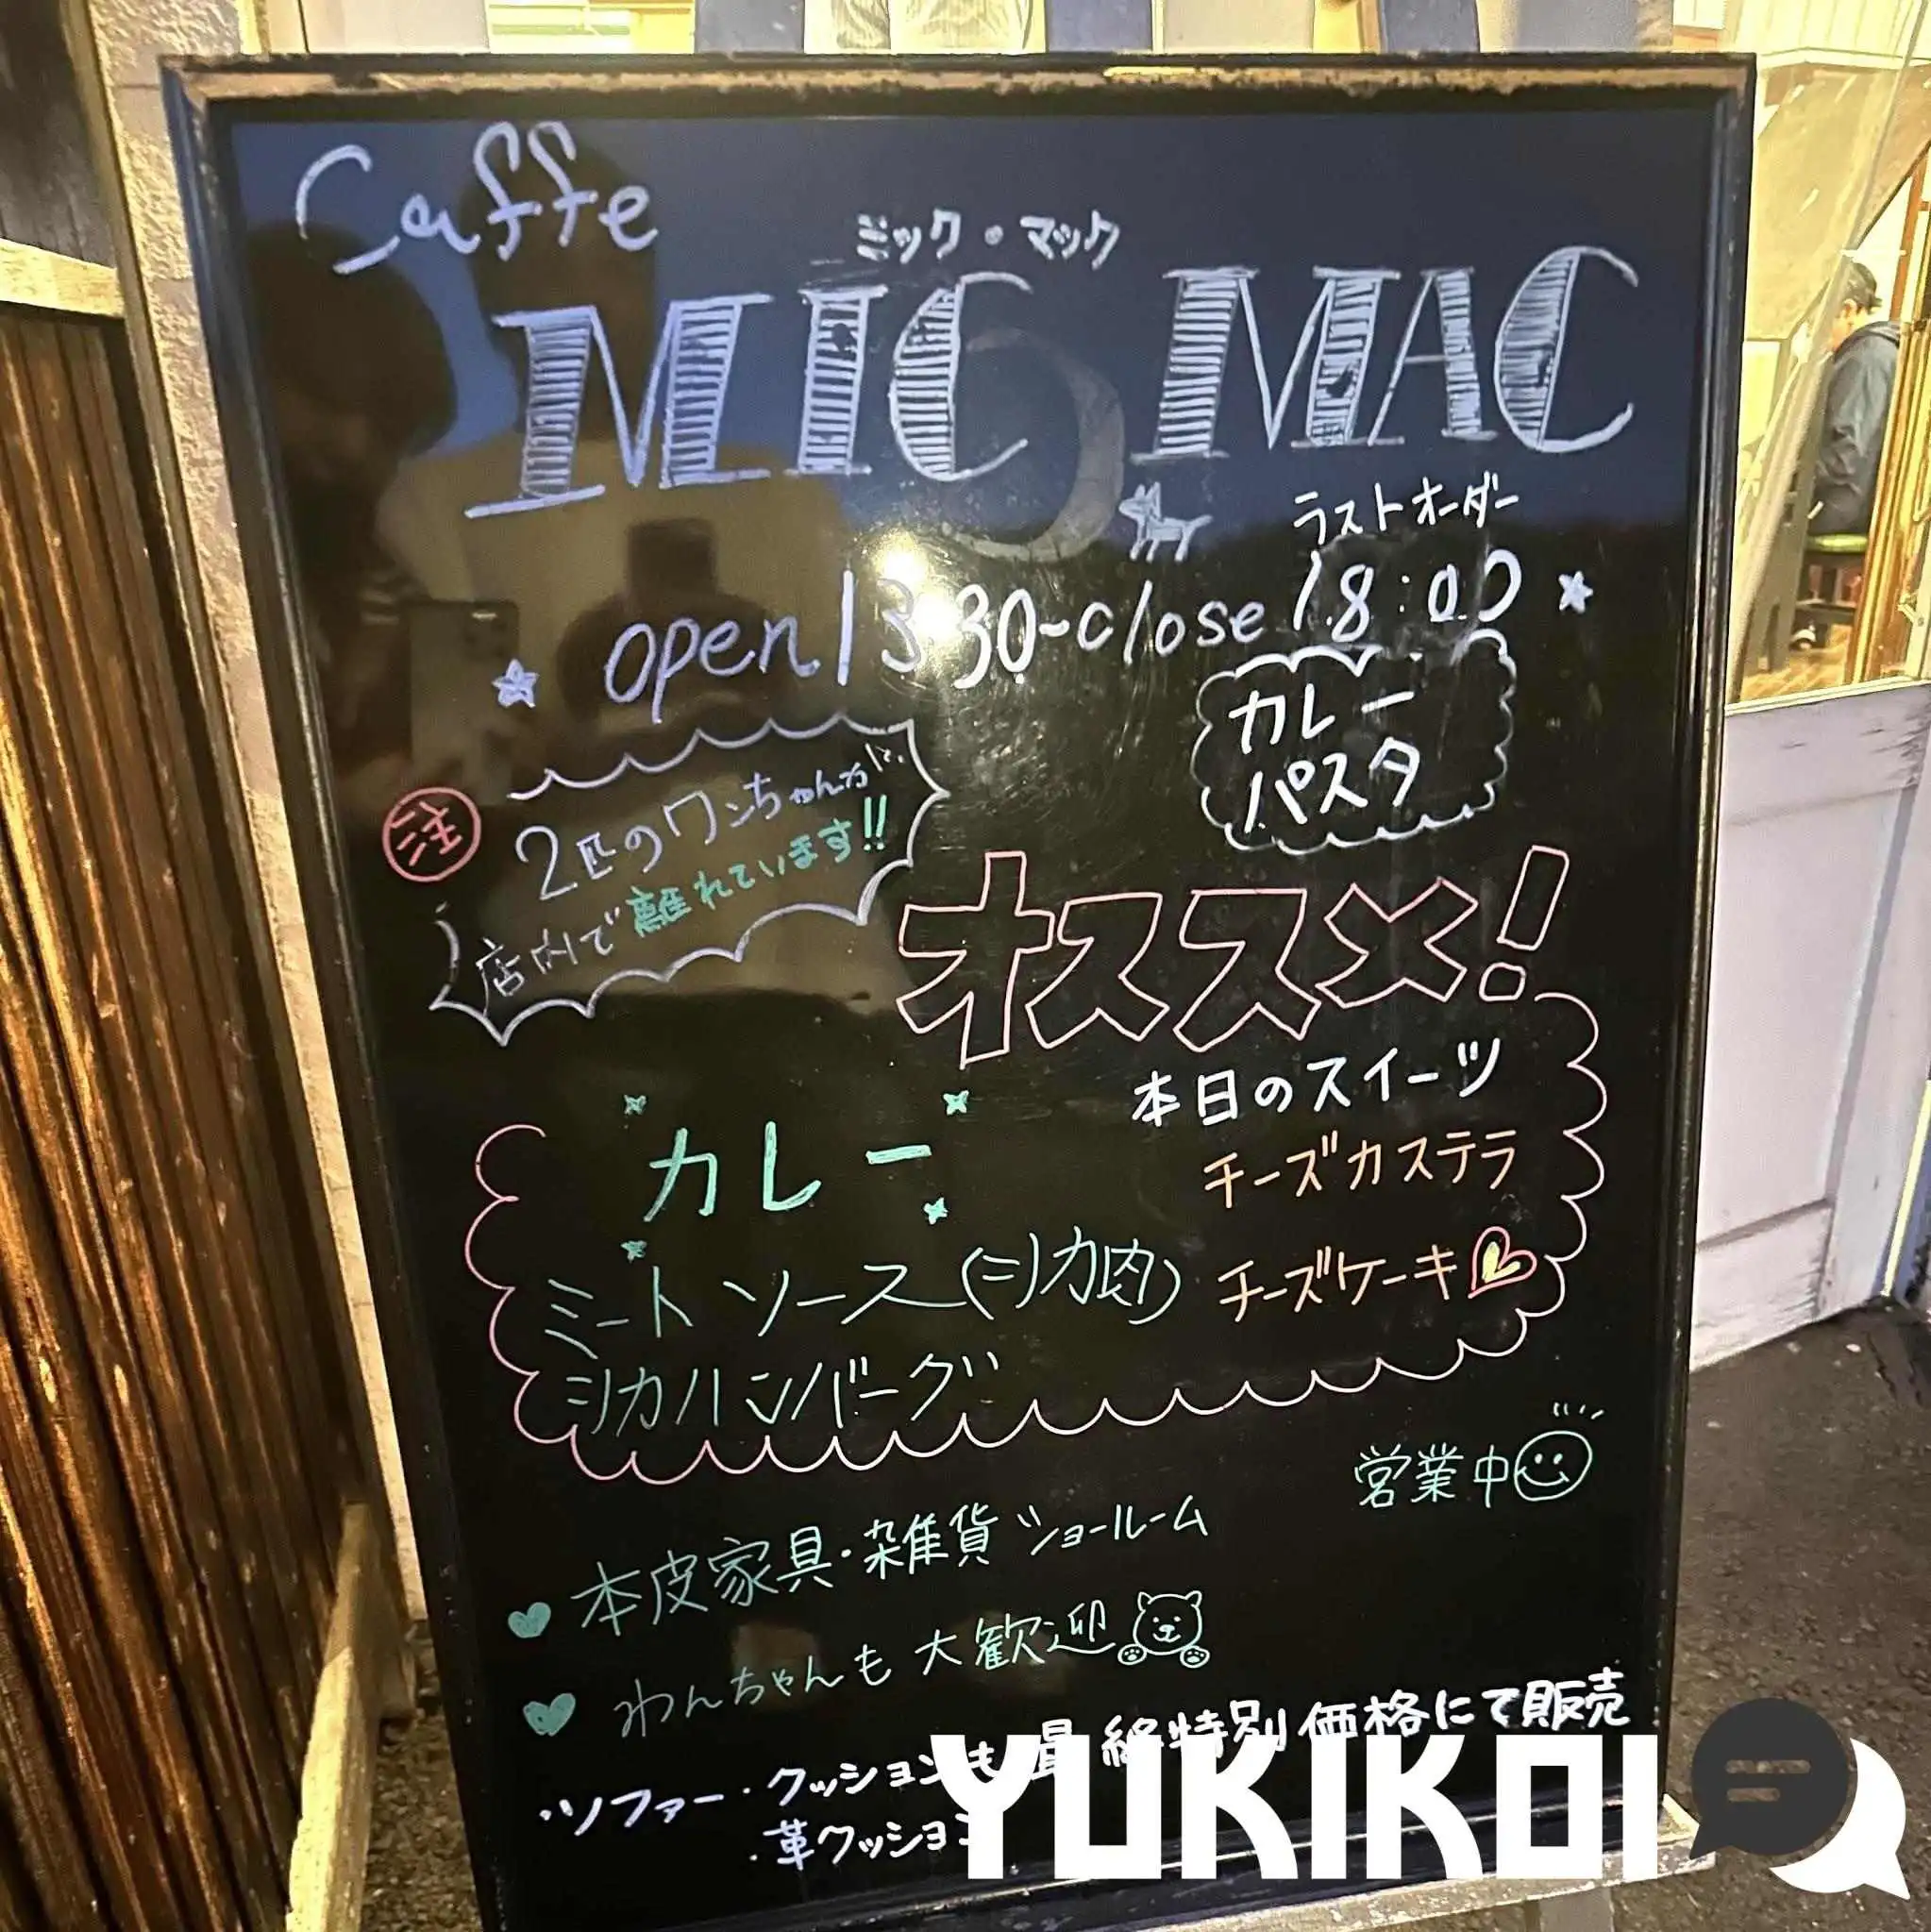 Caffe
ミック・マック
MIC MAC
ラストオーダー
open 13:30-close 18:00
カレー
パスタ
注
2匹のワンちゃんが
店内で離れています!!
オススメ!
本日のスイーツ
チーズカステラ
チーズケーキ
カレー
ミートソース(シカ肉)
シカハンバーグ
営業中
本皮家具・雑貨 ショールーム
わんちゃんも大歓迎
・ソファー・クッションも最終特別価格にて販売
・革クッション
YUKIKOI